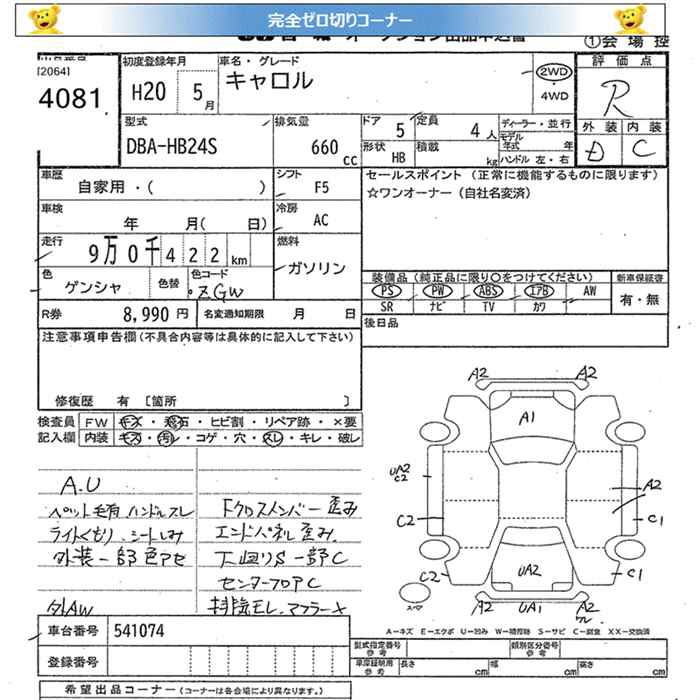 完全ゼロ切りコーナー
①会場控
[2064]
4081
初度登録年月
H20 5月
車名・グレード
キャロル
2WD
・
4WD
評価点
R
外装 内装
D C
型式
DBA-HB24S
排気量
660 cc
ドア 5
定員 4人
形状 HB
積載 kg
ディーラー・並行
モデル年式 年
ハンドル 左・右
車歴
自家用・( )
シフト F5
セールスポイント (正常に機能するものに限ります)
☆ワンオーナー(自社名変済)
車検
年 月( 日)
冷房 AC
走行
9万0千422km
燃料
ガソリン
色
ゲンシャ
色替
色コード
ZGW
装備品(純正品に限り〇をつけてください)
PS PW ABS エアB AW
SR ナビ TV カワ
新車保証書
有・無
R券 8,990円
名変通知期限 月 日
後日品
注意事項申告欄(不具合内容等は具体的に記入して下さい)
修復歴 有〔箇所 〕
検査員記入欄
FW キズ・飛石・ヒビ割・リペア跡・×要
内装 キズ・汚レ・コゲ・穴・スレ・キレ・破レ
A.U
ペット毛有 ハンドルスレ
ライトくもり、シートしみ
外装一部色アセ
外AW
Fクロスメンバー歪み
エンドパネル歪み
下廻りS一部C
センターフロアC
排気モレ、マフラー×
A2 A2
A1
UA2
C2
A2
C2
C1
C2
UA2
C1
スペア
A2 UA1 A2
ワレ
車台番号 541074
登録番号
A−キズ E−エクボ U−凹み W−補修跡 S−サビ C−腐食 XX−交換済
型式指定番号参考
類別区分番号参考
車庫証明用参考
長さ cm
幅 cm
高さ cm
希望出品コーナー(コーナーは各会場により異なります。)